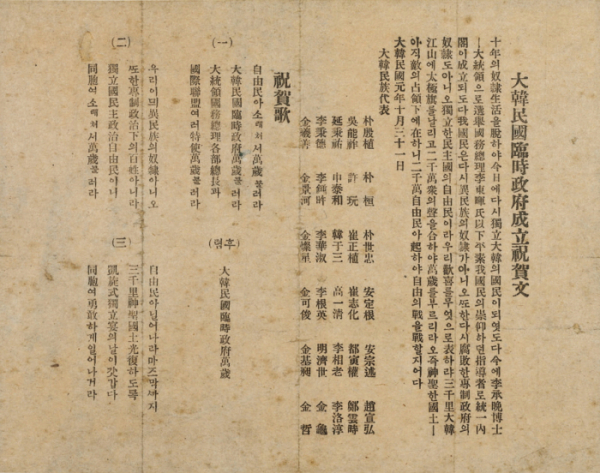 大韓民國臨時政府成立祝賀文
十年의奴隸生活을脫하야今日에다시獨立大韓의國民이되엿도다今에李承晩博士
ㅣ大統領으로選擧國務總理李東暉氏以下平素我國民의崇仰하던指導者로統一內
閣이成立되도다我國民은다시異民族의奴隸가아니오또한다시腐敗한專制政府의
奴隸도아니오獨立한民主國의自由民이라우리歡喜를무엇으로表하랴三千里大韓
江山에太極旗를날리고二千萬衆의聲을合하야萬歲를부르리라오즉神聖한國土ㅣ
아직敵의占領下에在하니二千萬自由民아起하야自由의戰을戰할지어다
大韓民國元年十月三十一日
大韓民族代表
朴殷植 朴桓 朴世忠 安定根 安宗述 趙宣弘
吳能祚 許玩 崔正植 崔志化 都寅權 鄭雲時
延秉祐 申泰和 韓于三 高一清 李相老 李洛淳
李秉德 李純時 李華淑 李根英 明濟世 金龜
金羲善 金景河 金燦星 金可俊 金基昶 金哲
祝賀歌
(一)
自由民아소래쳐서萬歲불러라
大韓民國臨時政府萬歲불러라
大統領國務總理各部總長과
國際聯盟여러特使萬歲불러라
(후렴)
大韓民國臨時政府萬歲
(二)
우리이믜異民族의奴隸아니오
또한專制政治下의百姓아니라
獨立國民主政治自由民이니
同胞여소래쳐서萬歲불러라
(三)
自由民아닐어나라마즈막까지
三千里神聖國土光復하도록
凱旋式獨立宴의날이갓갑다
同胞여勇敢하게일어나거라